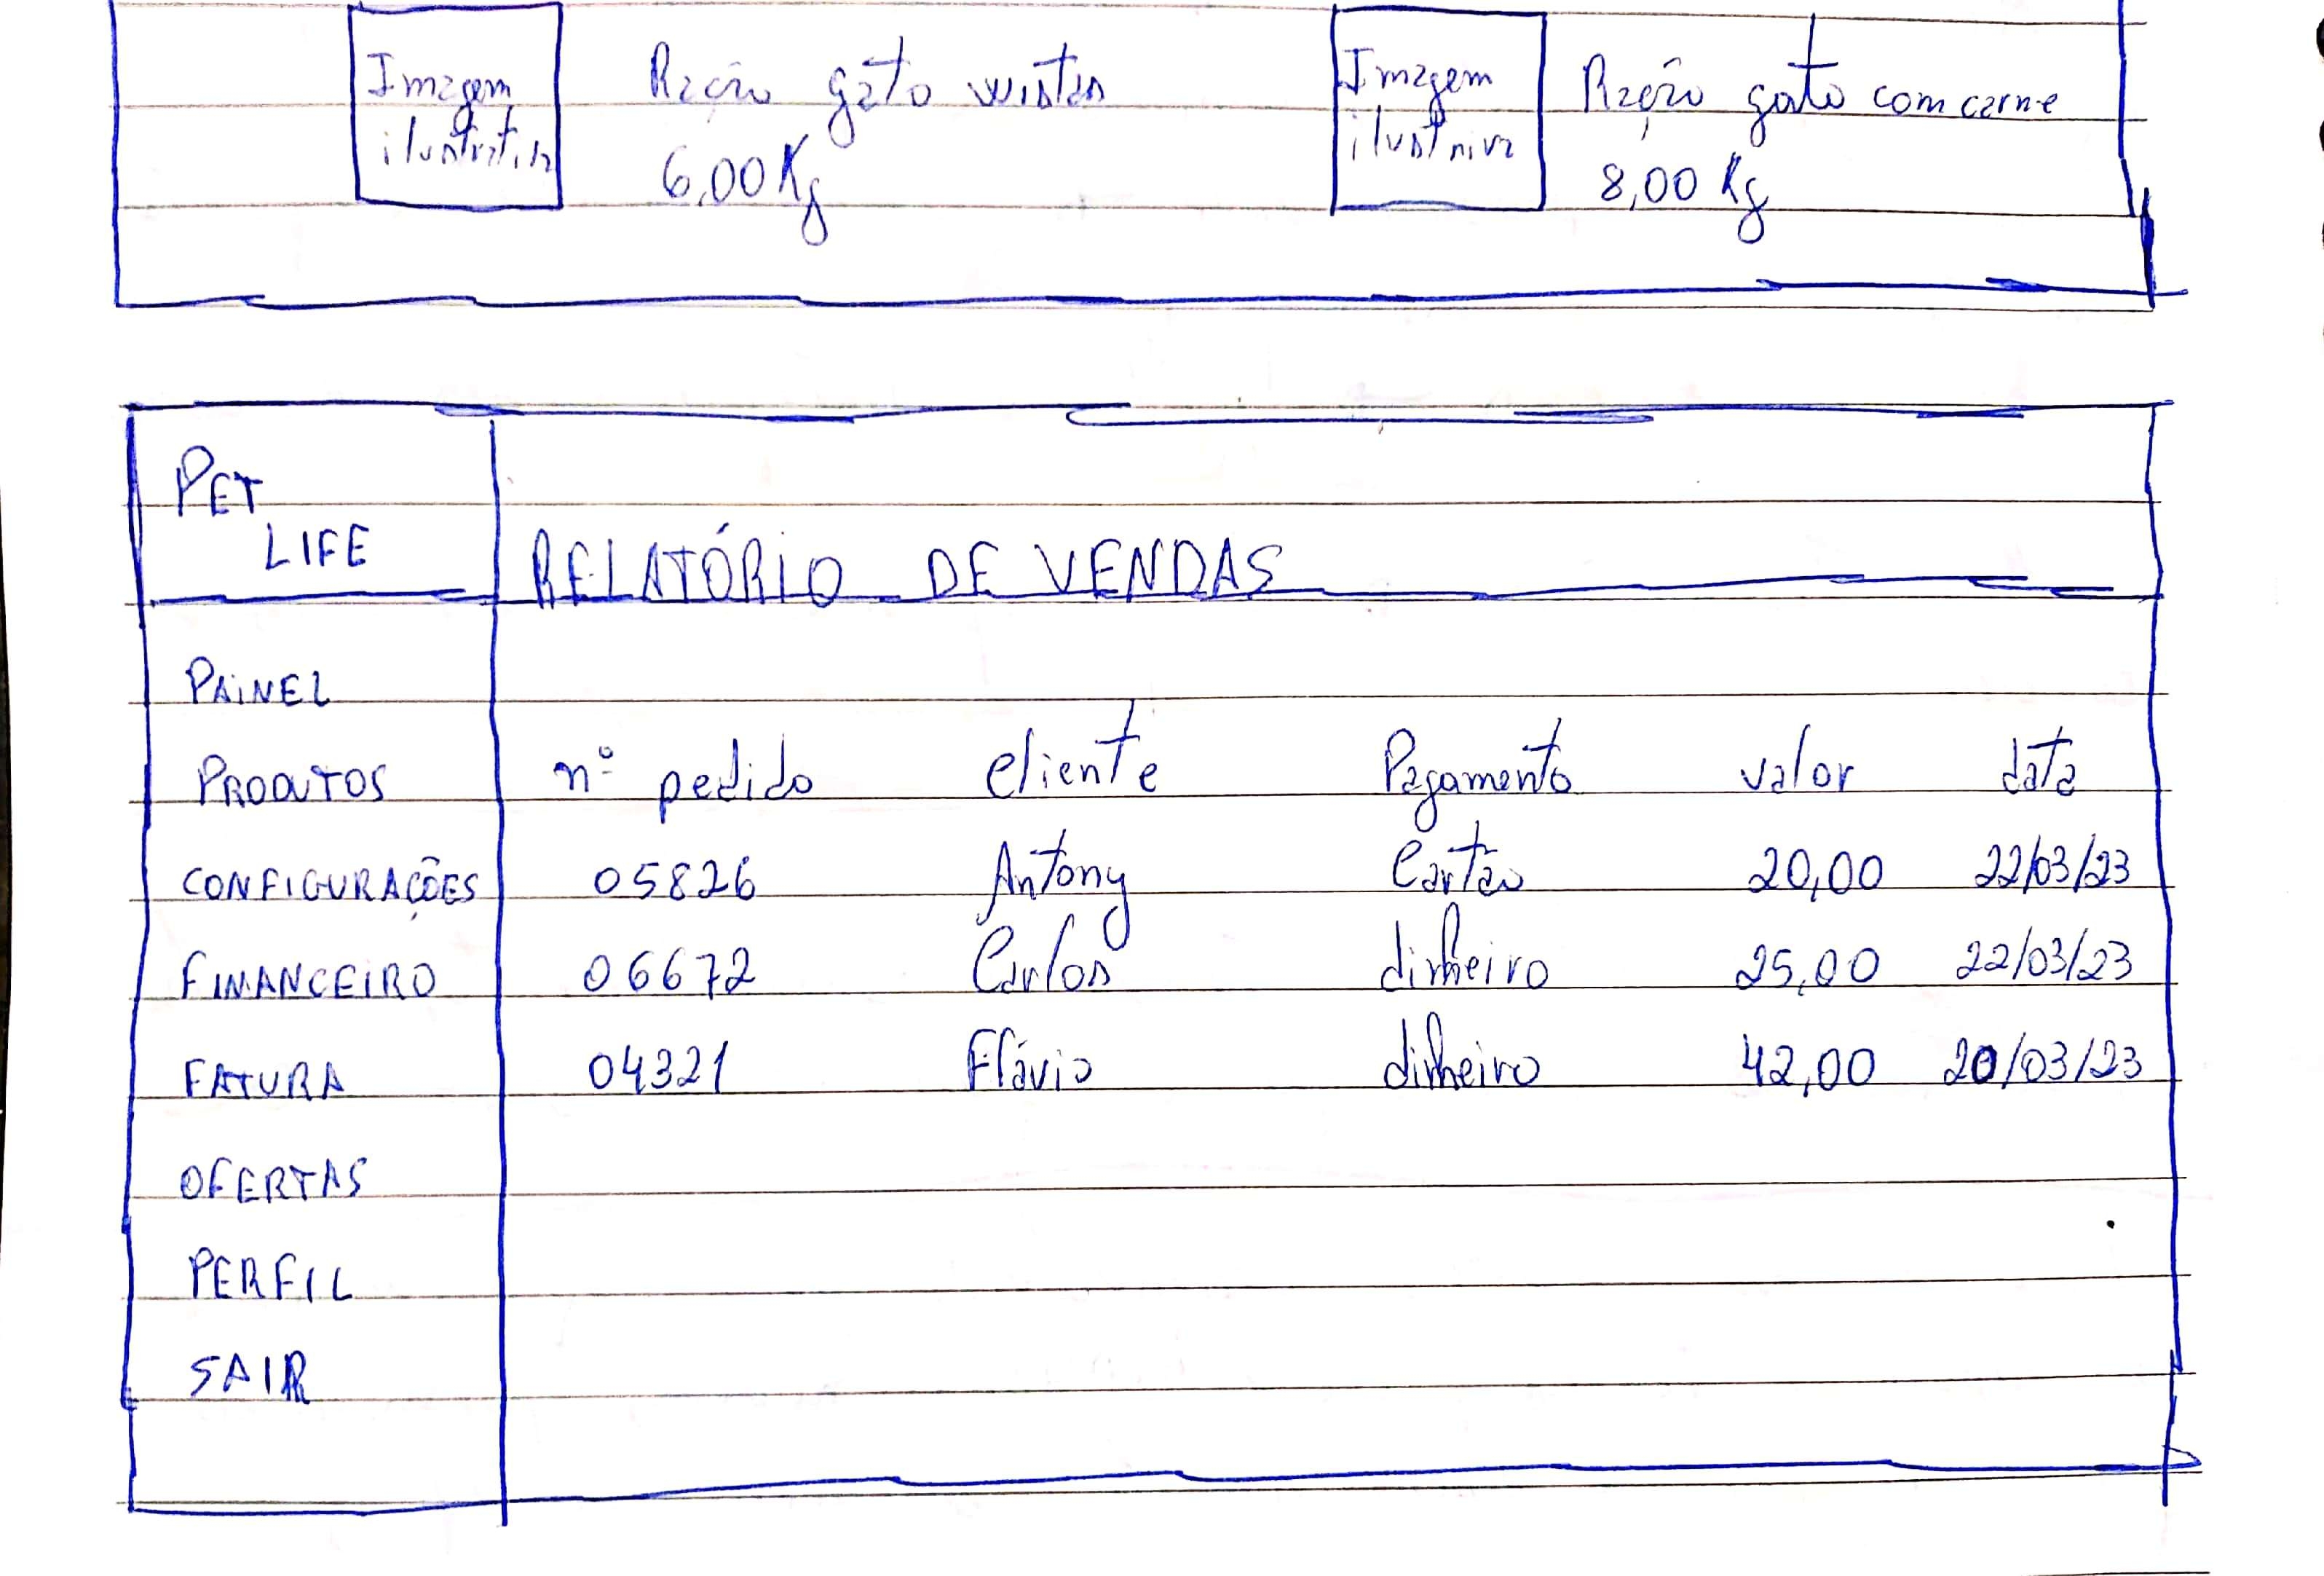 Imagem
ilustrativa
Ração gato
6,00 Kg
Imagem
ilustriva
Ração gato com carne
8,00 Kg
PET
LIFE
RELATÓRIO DE VENDAS
PAINEL
PRODUTOS
CONFIGURAÇÕES
FINANCEIRO
FATURA
OFERTAS
PERFIL
SAIR
nº pedido cliente Pagamento valor data
05826 Antony Cartão 20,00 22/03/23
06672 Carlos dinheiro 25,00 22/03/23
04321 Flávio dinheiro 42,00 20/03/23